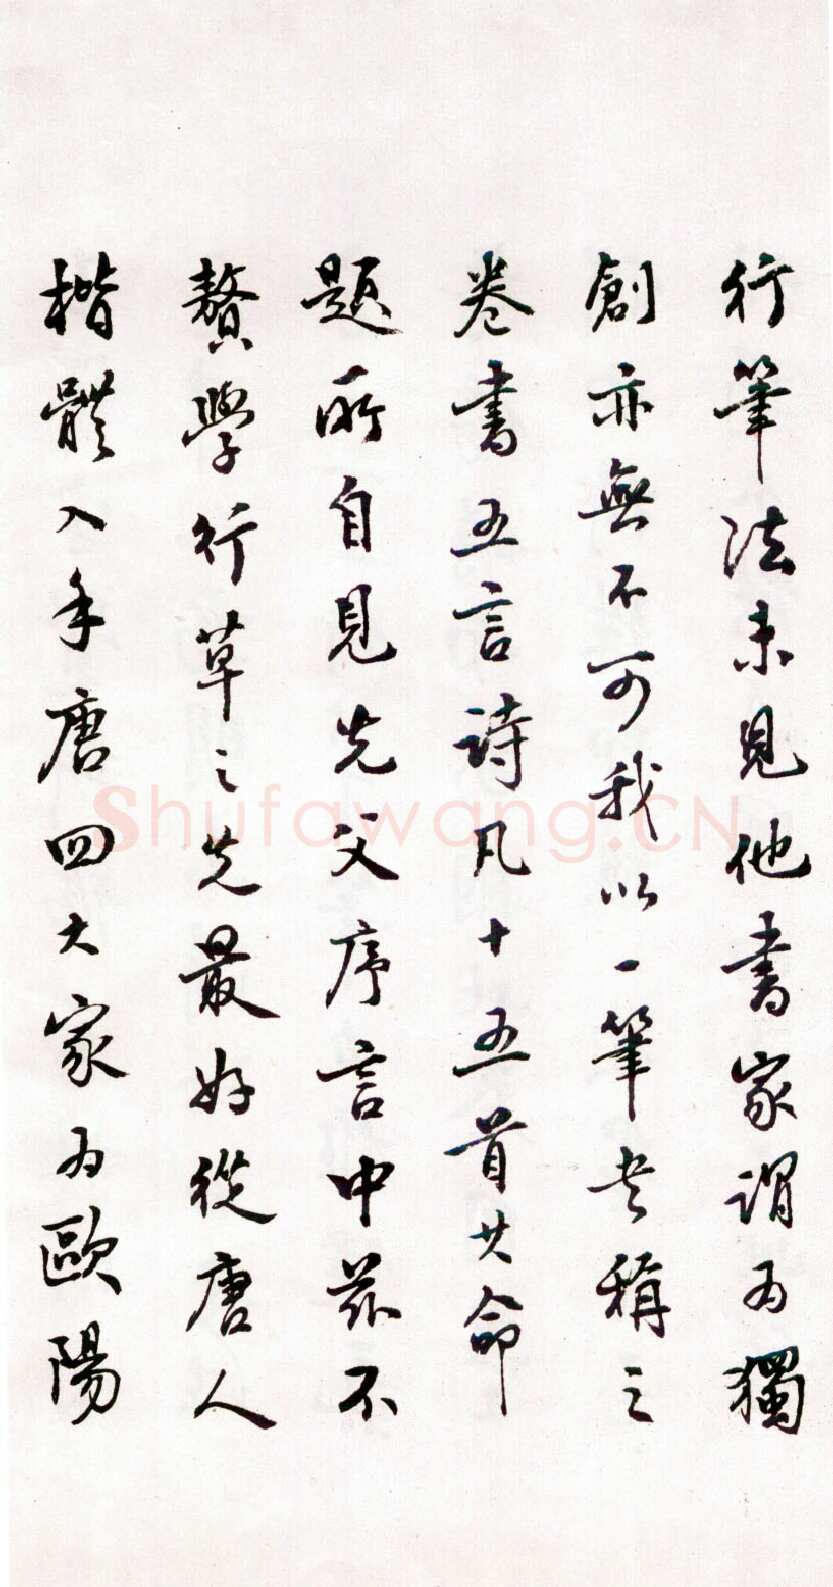 行筆法未見他書家謂為獨
創亦無不可我以一筆書稱之
卷書五言詩凡十五首其命
題所自見先父序言中茲不
贅學行草之先最好從唐人
楷體入手唐四大家為歐陽
Shufawang.CN